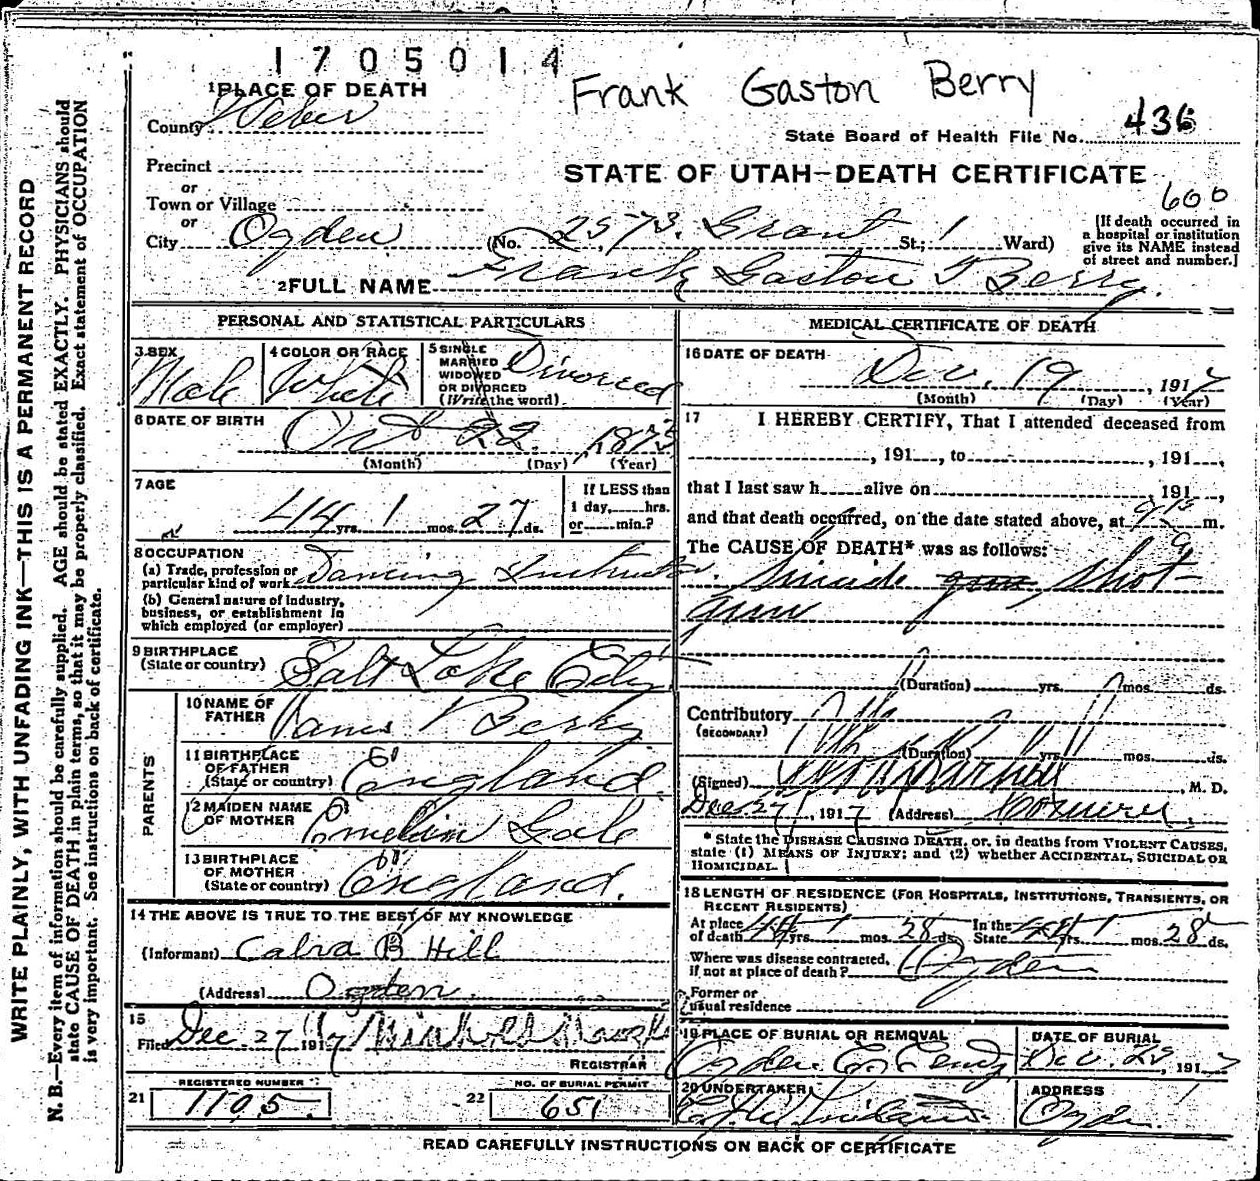 1705014
Frank Gaston Berry
1 PLACE OF DEATH
County Weber
State Board of Health File No. 436
Precinct
or
STATE OF UTAH—DEATH CERTIFICATE
600
Town or Village
or
City Ogden (No. 2573 Grant St.; 1 Ward)
[If death occurred in
a hospital or institution
give its NAME instead
of street and number.]
2 FULL NAME Frank Gaston Berry.
PERSONAL AND STATISTICAL PARTICULARS
3 SEX
Male
4 COLOR OR RACE
White
5 SINGLE
MARRIED
WIDOWED
OR DIVORCED
(Write the word)
Divorced
6 DATE OF BIRTH
Oct 22, 1873
(Month) (Day) (Year)
7 AGE
44 yrs. 1 mos. 27 ds.
If LESS than
1 day, hrs.
or min.?
8 OCCUPATION
(a) Trade, profession or
particular kind of work Dancing Instructor.
(b) General nature of industry,
business, or establishment in
which employed (or employer)
9 BIRTHPLACE
(State or country) Salt Lake City
PARENTS
10 NAME OF
FATHER James Berry
11 BIRTHPLACE
OF FATHER
(State or country) England
12 MAIDEN NAME
OF MOTHER Gale
13 BIRTHPLACE
OF MOTHER
(State or country) England.
14 THE ABOVE IS TRUE TO THE BEST OF MY KNOWLEDGE
(Informant) B Hill
(Address) Ogden.
15
Filed Dec 27 1917
REGISTRAR
REGISTERED NUMBER
21 1105.
NO. OF BURIAL PERMIT
22 651
MEDICAL CERTIFICATE OF DEATH
16 DATE OF DEATH
Dec. 19, 1917
(Month) (Day) (Year)
17 I HEREBY CERTIFY, That I attended deceased from
, 191 , to , 191 ,
that I last saw h alive on 191 ,
and that death occurred, on the date stated above, at 9 15 m.
The CAUSE OF DEATH* was as follows:
Suicide gun shot-
gun
(Duration) yrs. mos. ds.
Contributory
(SECONDARY)
(Duration) yrs. mos. ds.
(Signed) , M. D.
Dec 27, 1917 (Address) Coroner.
* State the DISEASE CAUSING DEATH, or, in deaths from VIOLENT CAUSES,
state (1) MEANS OF INJURY; and (2) whether ACCIDENTAL, SUICIDAL OR
HOMICIDAL.
18 LENGTH OF RESIDENCE (FOR HOSPITALS, INSTITUTIONS, TRANSIENTS, OR
RECENT RESIDENTS)
At place
of death 44 yrs. 1 mos. 28 ds.
In the
State 44 yrs. 1 mos. 28 ds.
Where was disease contracted,
if not at place of death? Ogden
Former or
usual residence
19 PLACE OF BURIAL OR REMOVAL
Ogden
DATE OF BURIAL
Dec. 25, 1917
20 UNDERTAKER
ADDRESS
Ogden.
READ CAREFULLY INSTRUCTIONS ON BACK OF CERTIFICATE
WRITE PLAINLY, WITH UNFADING INK—THIS IS A PERMANENT RECORD
N. B.—Every item of information should be carefully supplied. AGE should be stated EXACTLY. PHYSICIANS should
state CAUSE OF DEATH in plain terms, so that it may be properly classified. Exact statement of OCCUPATION
is very important. See instructions on back of certificate.